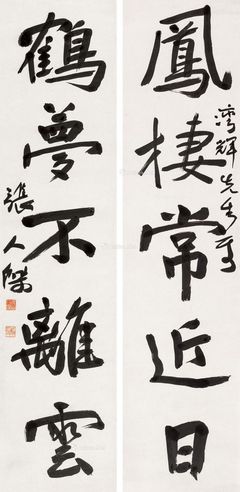 鳳棲常近日
先生
鶴夢不離雲
張人傑